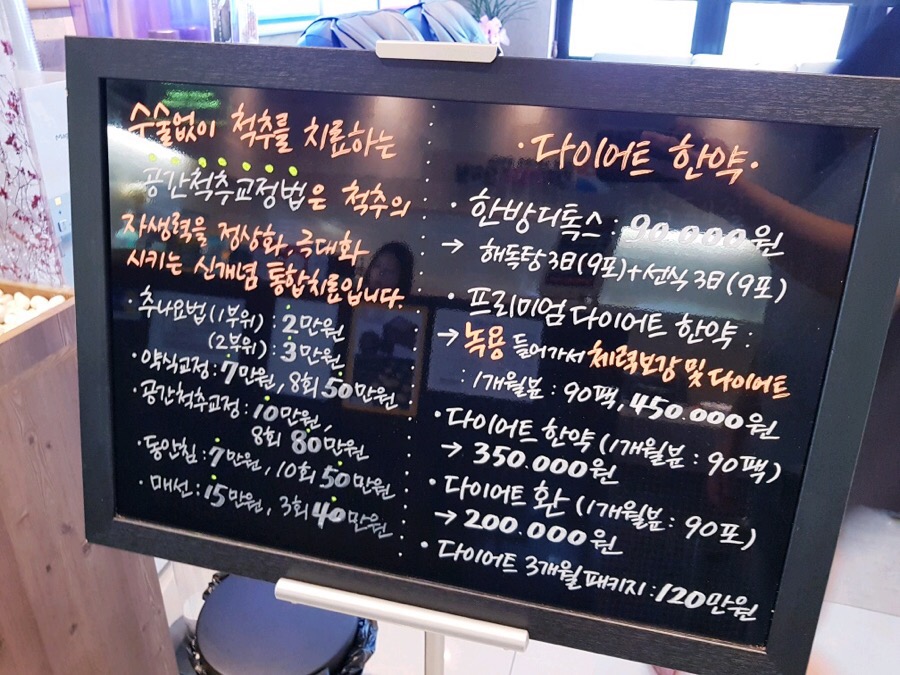 수술없이 척추를 치료하는
공간척추교정법은 척추의
자생력을 정상화, 극대화
시키는 신개념 통합치료입니다.
· 추나요법 (1부위) : 2만원
(2부위) : 3만원
· 약식교정 : 7만원, 8회 50만원
· 공간척추교정 : 10만원,
8회 80만원
· 동안침 : 7만원, 10회 50만원
· 매선 : 15만원, 3회 40만원
· 다이어트 한약 ·
· 한방디톡스 : 90.000원
→ 해독탕 3日 (9포) + 선식 3日 (9포)
· 프리미엄 다이어트 한약 :
→ 녹용 들어가서 체력보강 및 다이어트
: 1개월분 : 90팩, 450.000원
· 다이어트 한약 (1개월분 : 90팩)
→ 350.000원
· 다이어트 환 (1개월분 : 90포)
→ 200.000원
· 다이어트 3개월 패키지 : 120만원